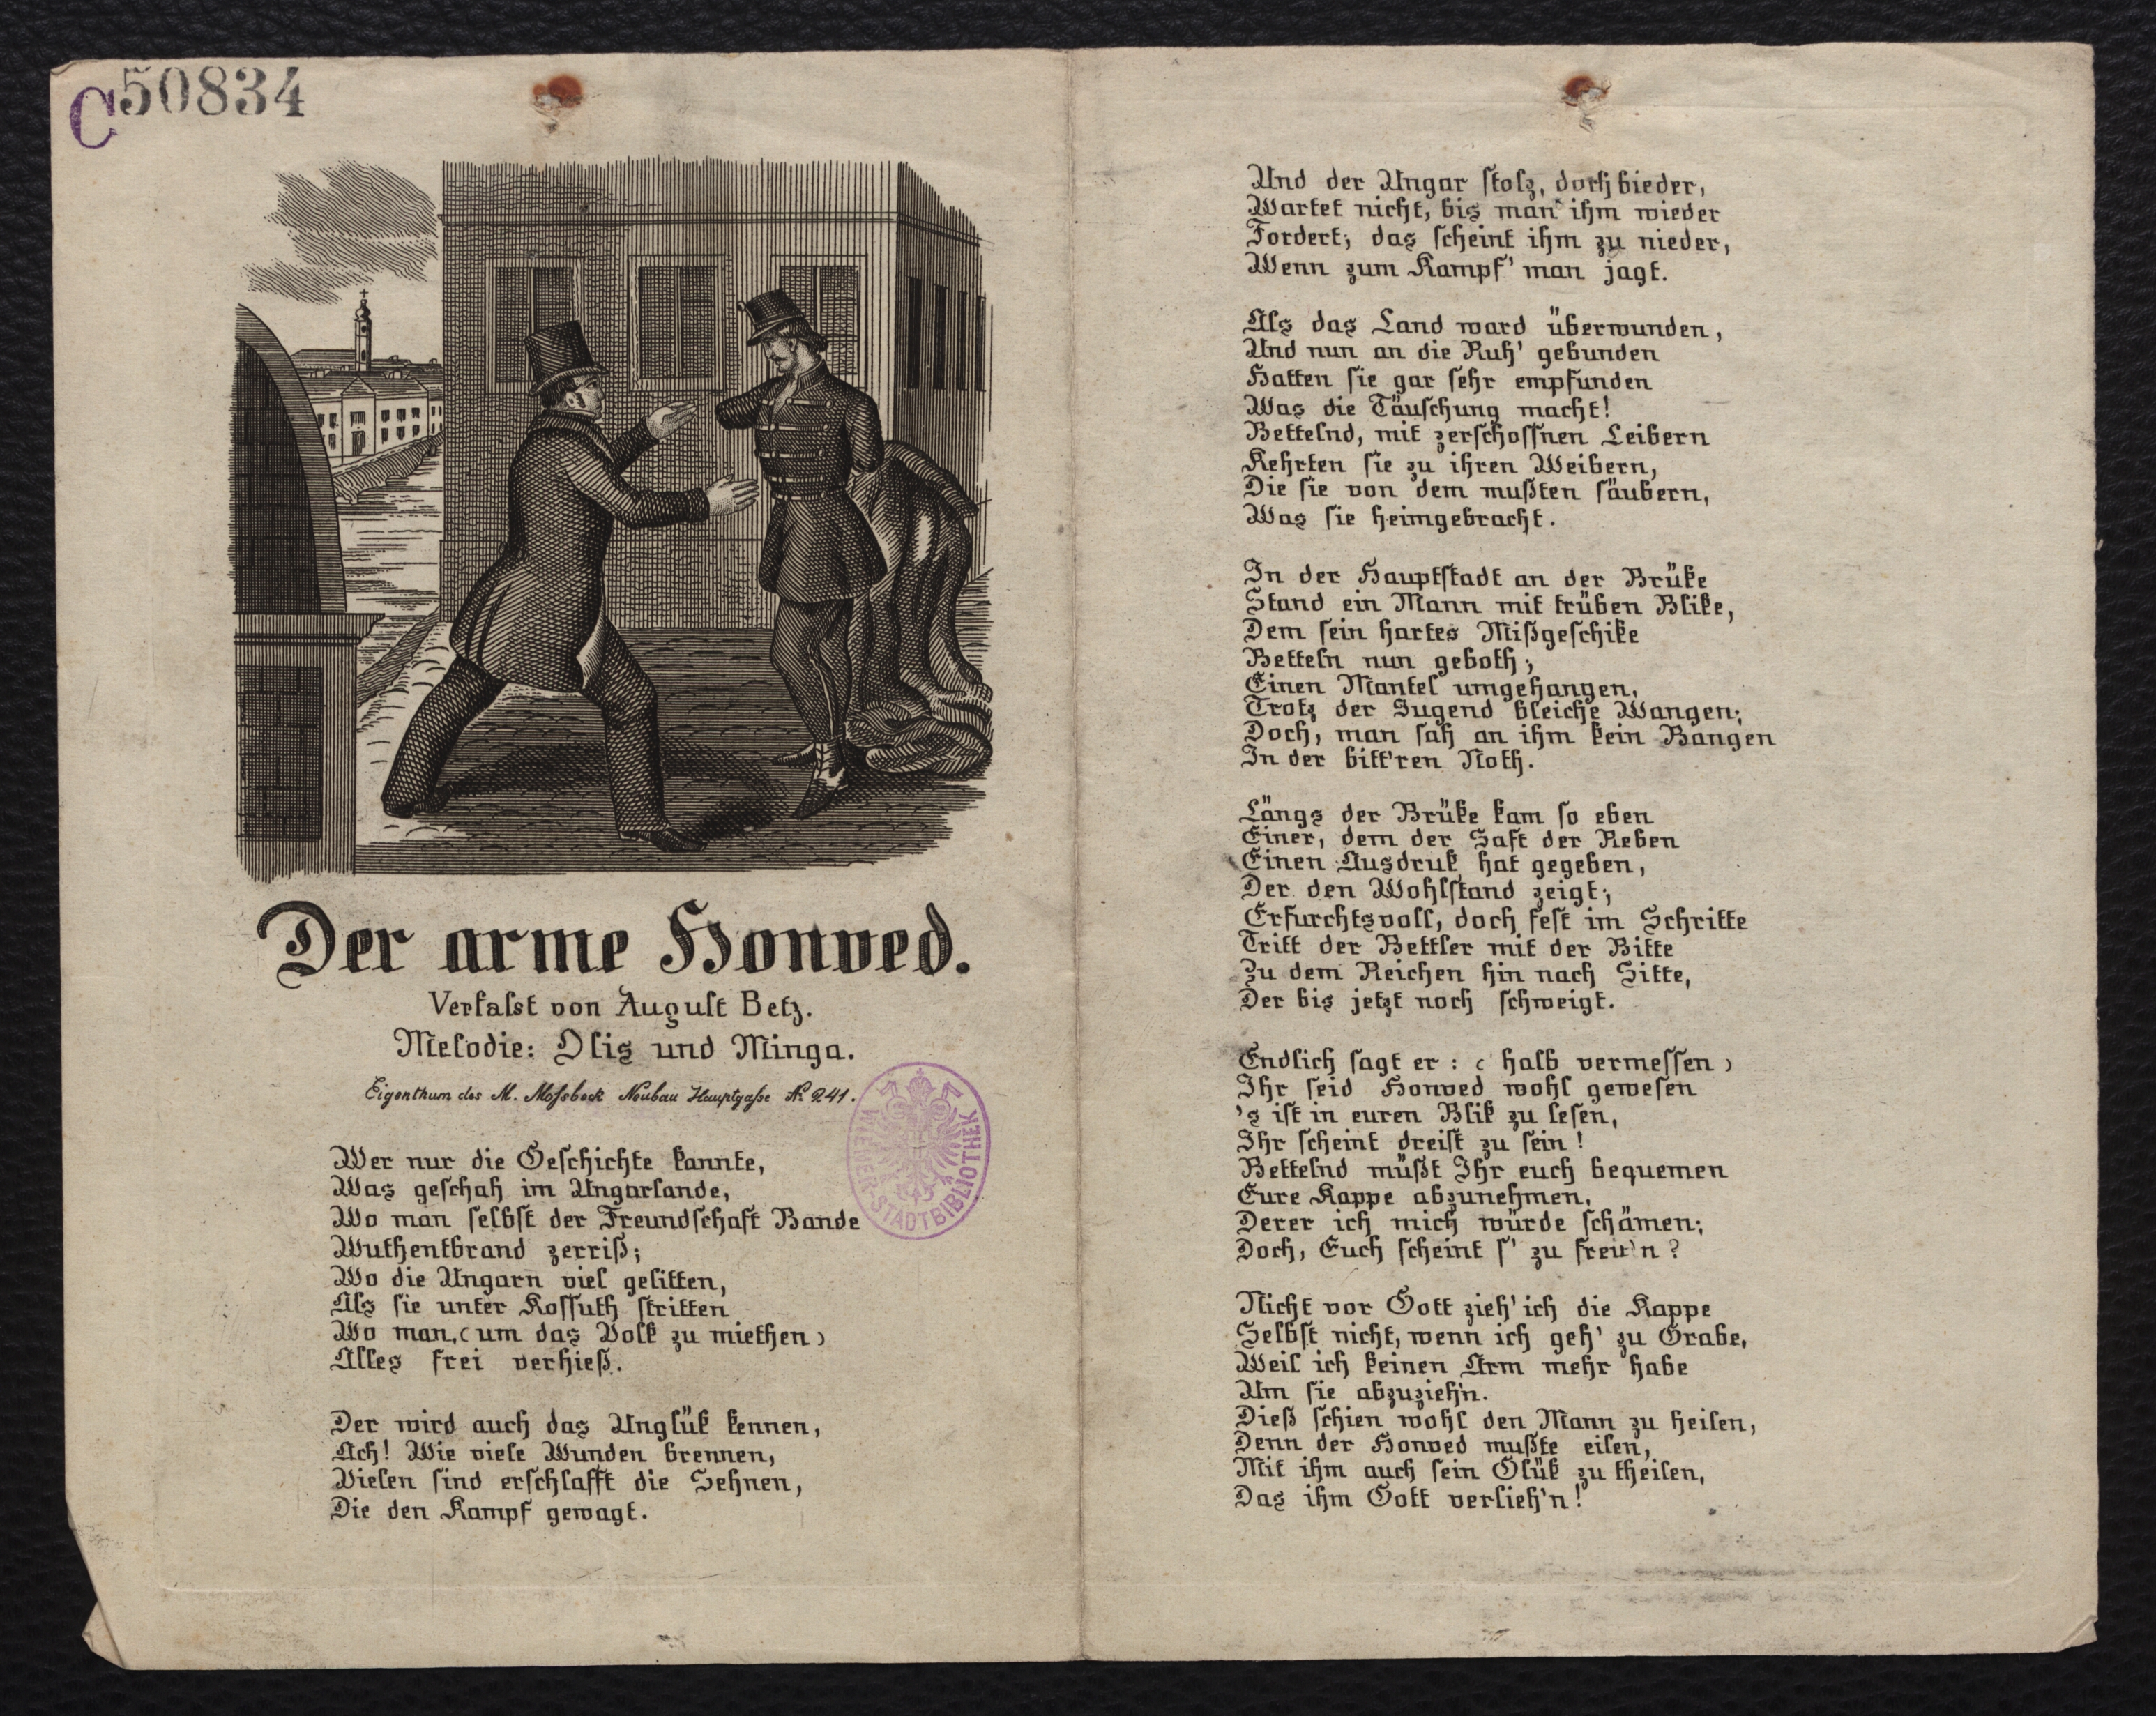 C50834
Der arme Honved.
Verfaſst von August Betz.
Melodie: Olis und Minga.
Eigenthum des M. Moſsbeck Neubau Hauptgaſse Nr 241.
WIENER-STADTBIBLIOTHEK
Wer nur die Geſchichte kannte,
Was geſchah im Ungarlande,
Wo man ſelbſt der Freundſchaft Bande
Wuthentbrand zerriß;
Wo die Ungarn viel gelitten,
Als ſie unter Koſſuth ſtritten
Wo man, (um das Volk zu miethen)
Alles frei verhieß.
Der wird auch das Unglük kennen,
Ach! Wie viele Wunden brennen,
Vielen ſind erſchlafft die Sehnen,
Die den Kampf gewagt.
Und der Ungar ſtolz, doch bieder,
Wartet nicht, bis man ihm wieder
Fordert; das ſcheint ihm zu nieder,
Wenn zum Kampf' man jagt.
Als das Land ward überwunden,
Und nun an die Ruh' gebunden
Hatten ſie gar ſehr empfunden
Was die Täuſchung macht!
Bettelnd, mit zerſchoſſnen Leibern
Kehrten ſie zu ihren Weibern,
Die ſie von dem mußten ſäubern,
Was ſie heimgebracht.
In der Hauptſtadt an der Brüke
Stand ein Mann mit trüben Blike,
Dem ſein hartes Mißgeſchike
Betteln nun geboth;
Einen Mantel umgehangen,
Trotz der Jugend bleiche Wangen;
Doch, man ſah an ihm kein Bangen
In der bitt'ren Noth.
Längs der Brüke kam ſo eben
Einer, dem der Saft der Reben
Einen Ausdruk hat gegeben,
Der den Wohlſtand zeigt;
Erfurchtsvoll, doch feſt im Schritte
Tritt der Bettler mit der Bitte
Zu dem Reichen hin nach Sitte,
Der bis jetzt noch ſchweigt.
Endlich ſagt er: (halb vermeſſen)
Ihr ſeid Honved wohl geweſen
's iſt in euren Blik zu leſen,
Ihr ſcheint dreiſt zu ſein!
Bettelnd müßt Ihr euch bequemen
Eure Kappe abzunehmen,
Derer ich mich würde ſchämen;
Doch, Euch ſcheint ſ' zu freu'n?
Nicht vor Gott zieh' ich die Kappe
Selbſt nicht, wenn ich geh' zu Grabe,
Weil ich keinen Arm mehr habe
Um ſie abzuzieh'n.
Dieß ſchien wohl den Mann zu heilen,
Denn der Honved mußte eilen,
Mit ihm auch ſein Glük zu theilen,
Das ihm Gott verlieh'n!